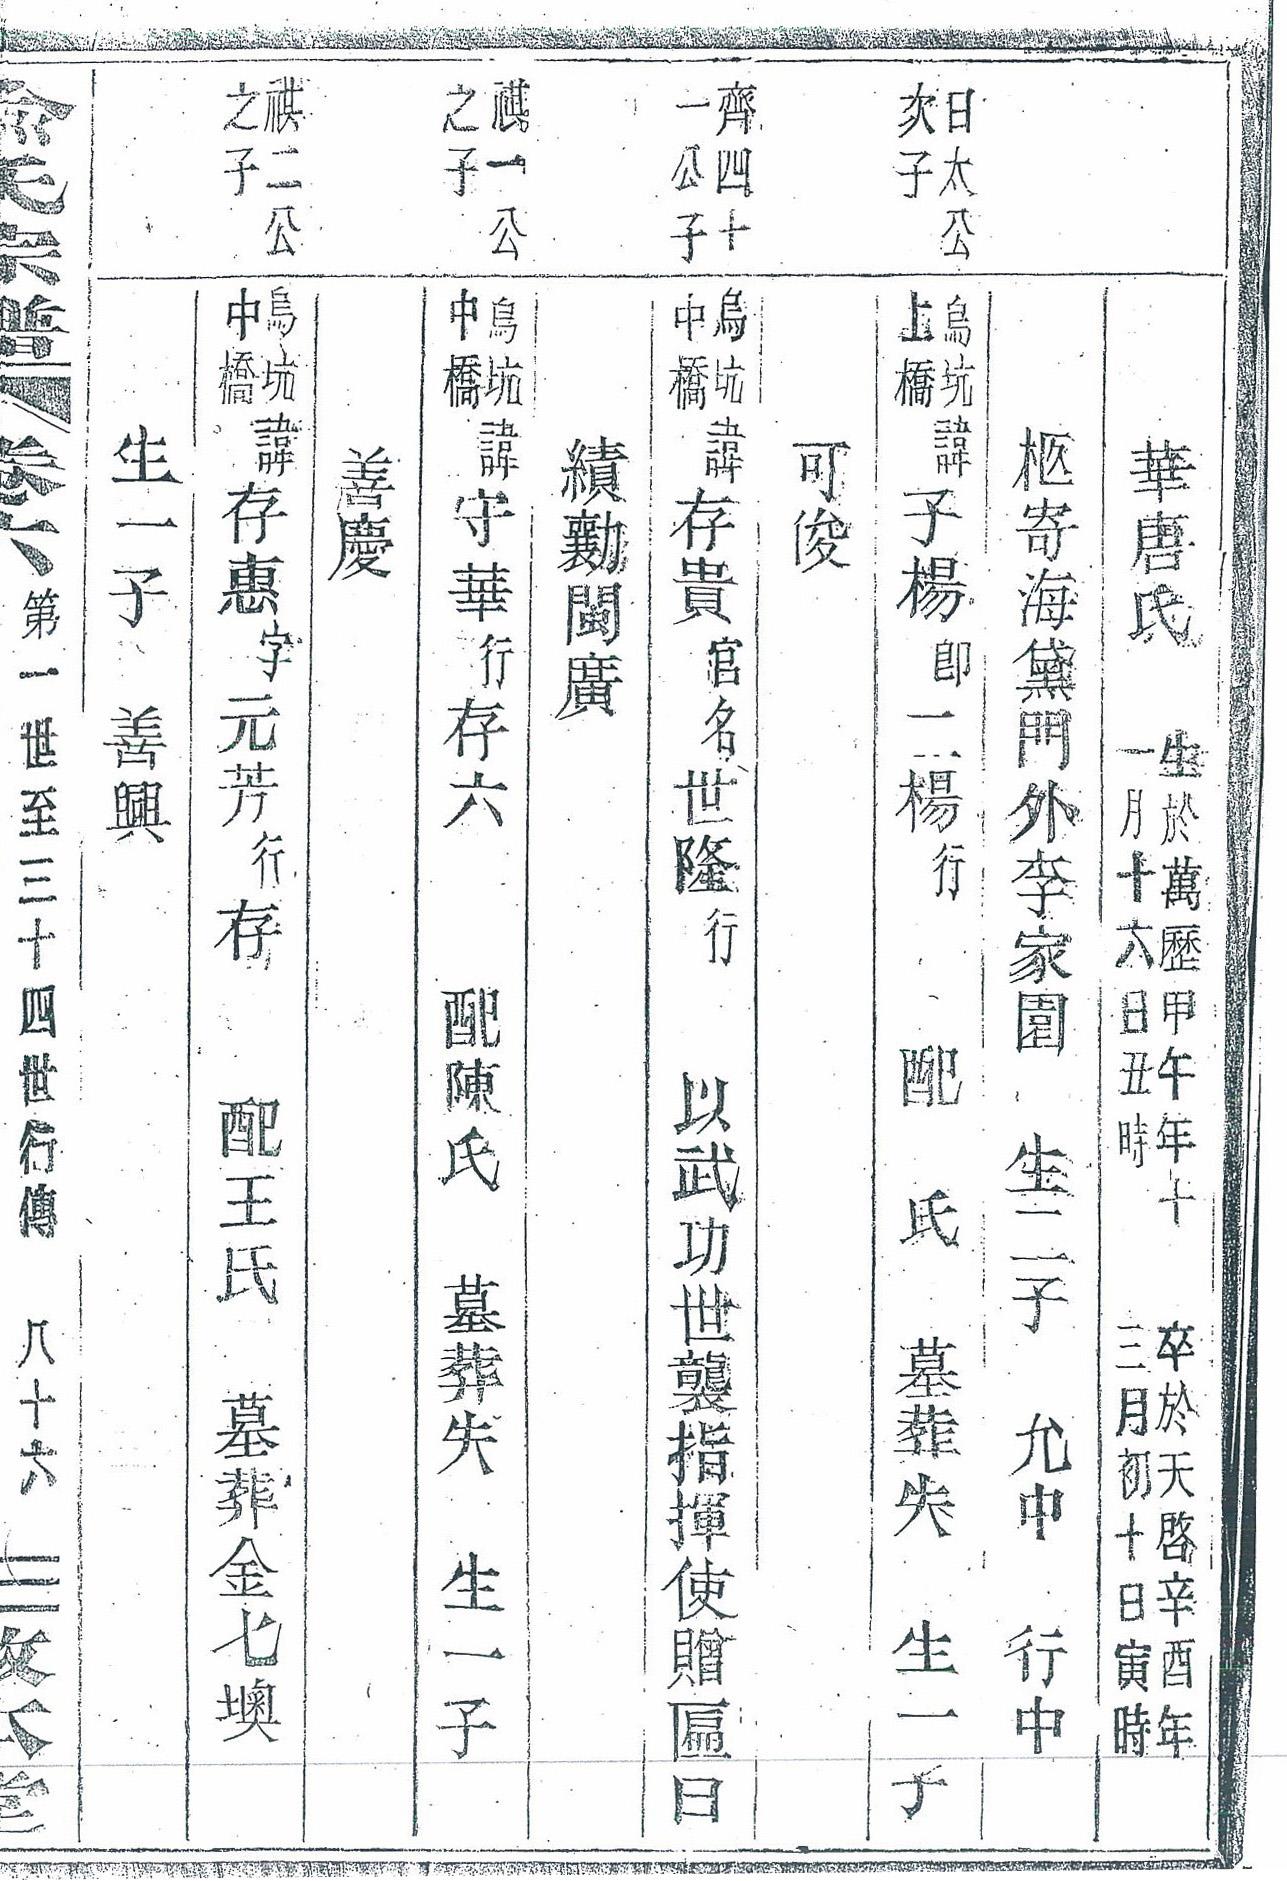 華唐氏 生於萬歷甲午年十一月十六日丑時 卒於天啓辛酉年三月初十日寅時
柩寄海黛門外李家園 生二子 允中 行中
日太公次子 烏坑上橋 諱子楊即一楊行 配 氏 墓葬失 生一子
可俊
齊四十一公子 烏坑中橋 諱存貴官名世隆行 以武功世襲指揮使贈匾曰
績勷閩廣
祺一公之子 烏坑中橋 諱守華行存六 配陳氏 墓葬失 生一子
善慶
祺二公之子 烏坑中橋 諱存惠字元芳行存 配王氏 墓葬金七墺
生一子 善興
氏宗譜 卷六 第一世至三十四世行傳 八十六